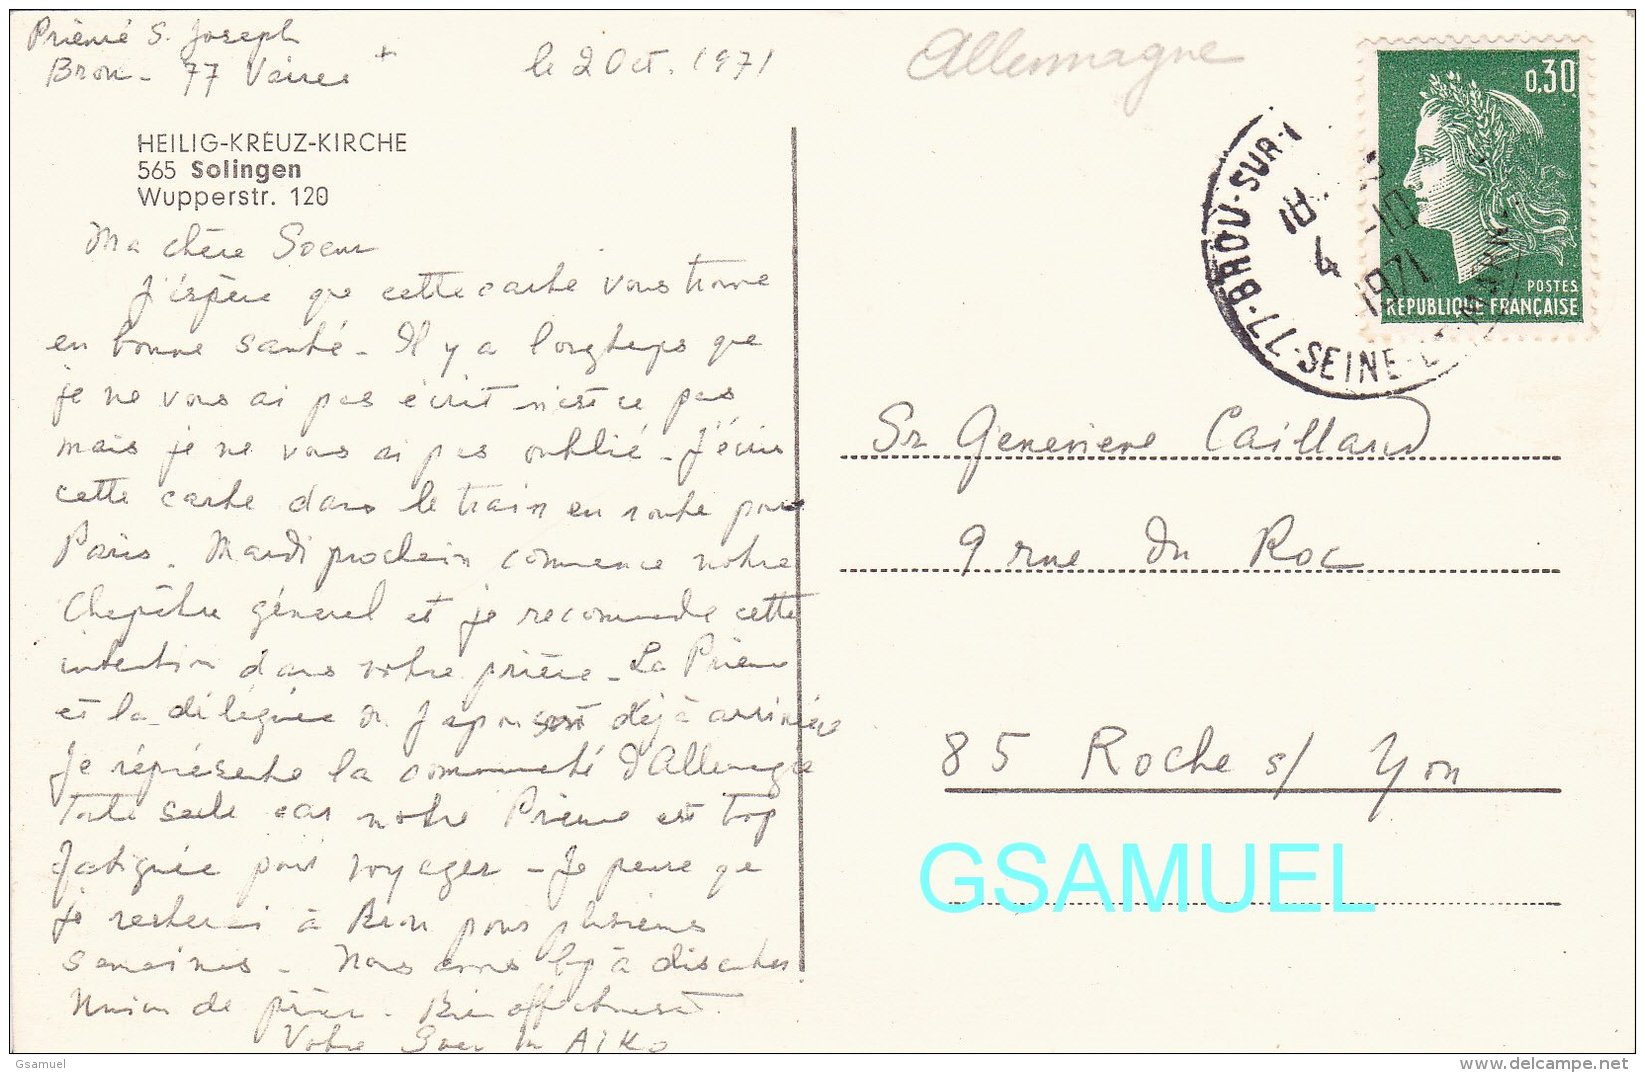 Prieuré S. Joseph
Brou - 77 Vaires +
le 2 Oct. 1971
Allemagne
HEILIG-KREUZ-KIRCHE
565 Solingen
Wupperstr. 120
Ma chère Soeur
J'espère que cette carte vous trouve
en bonne santé - Il y a longtemps que
je ne vous ai pas écrit n'est ce pas
mais je ne vous ai pas oublié - J'écris
cette carte dans le train en route pour
Paris. Mardi prochain commence notre
Chapitre général et je recommande cette
intention dans votre prière - La Prieure
et la déléguée du Japon sont déjà arrivées
Je représente la communauté d'Allemagne
toute seule car notre Prieure est trop
fatiguée pour voyager - Je pense que
je resterai à Brou pour plusieurs
semaines - Nous avons bcp à discuter
Union de prière. Bien affectueusement.
Votre Soeur M Aiko
0,30
POSTES
REPUBLIQUE FRANÇAISE
77-BROU-SUR-
SEINE-
18
4 -10
1971
Sr Geneviève Caillaud
9 rue du Roc
85 Roche s/ Yon
GSAMUEL
Gsamuel
www.delcampe.net